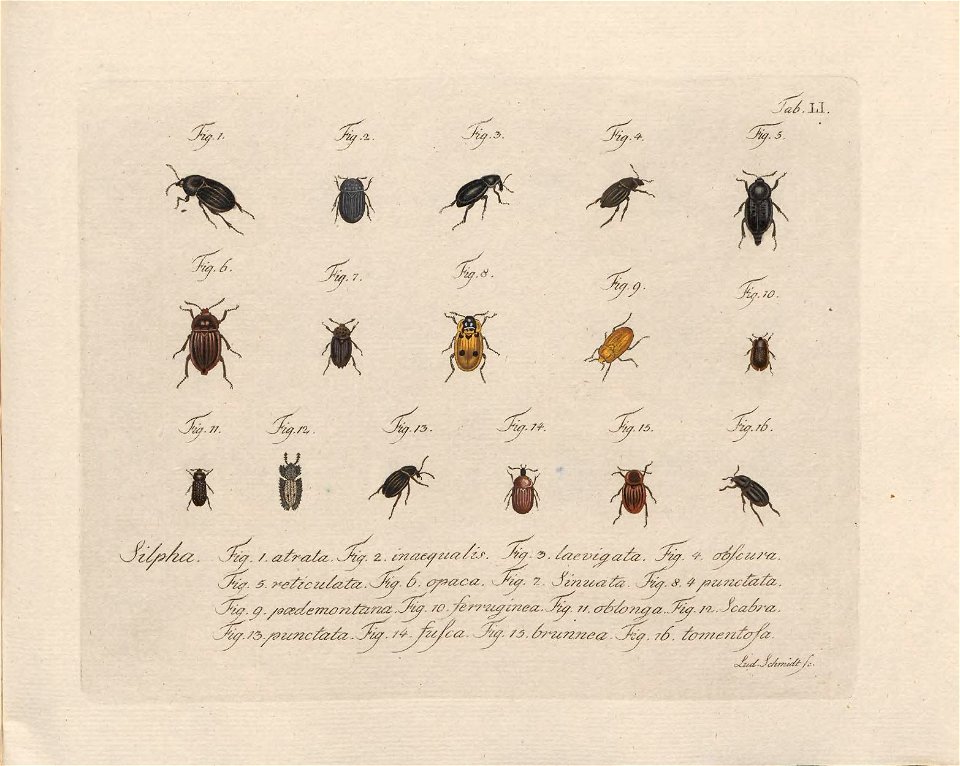 Tab. LI.
Fig. 1. Fig. 2. Fig. 3. Fig. 4. Fig. 5.
Fig. 6. Fig. 7. Fig. 8. Fig. 9. Fig. 10.
Fig. 11. Fig. 12. Fig. 13. Fig. 14. Fig. 15. Fig. 16.
Silpha. Fig. 1. atrata. Fig. 2. inaequalis. Fig. 3. laevigata. Fig. 4. obſcura.
Fig. 5. reticulata. Fig. 6. opaca. Fig. 7. Sinuata. Fig. 8. 4 punctata.
Fig. 9. pædemontana. Fig. 10. ferruginea. Fig. 11. oblonga. Fig. 12. Scabra.
Fig. 13. punctata. Fig. 14. fuſca. Fig. 15. brunnea. Fig. 16. tomentoſa.
Lud. Schmidt ſc.